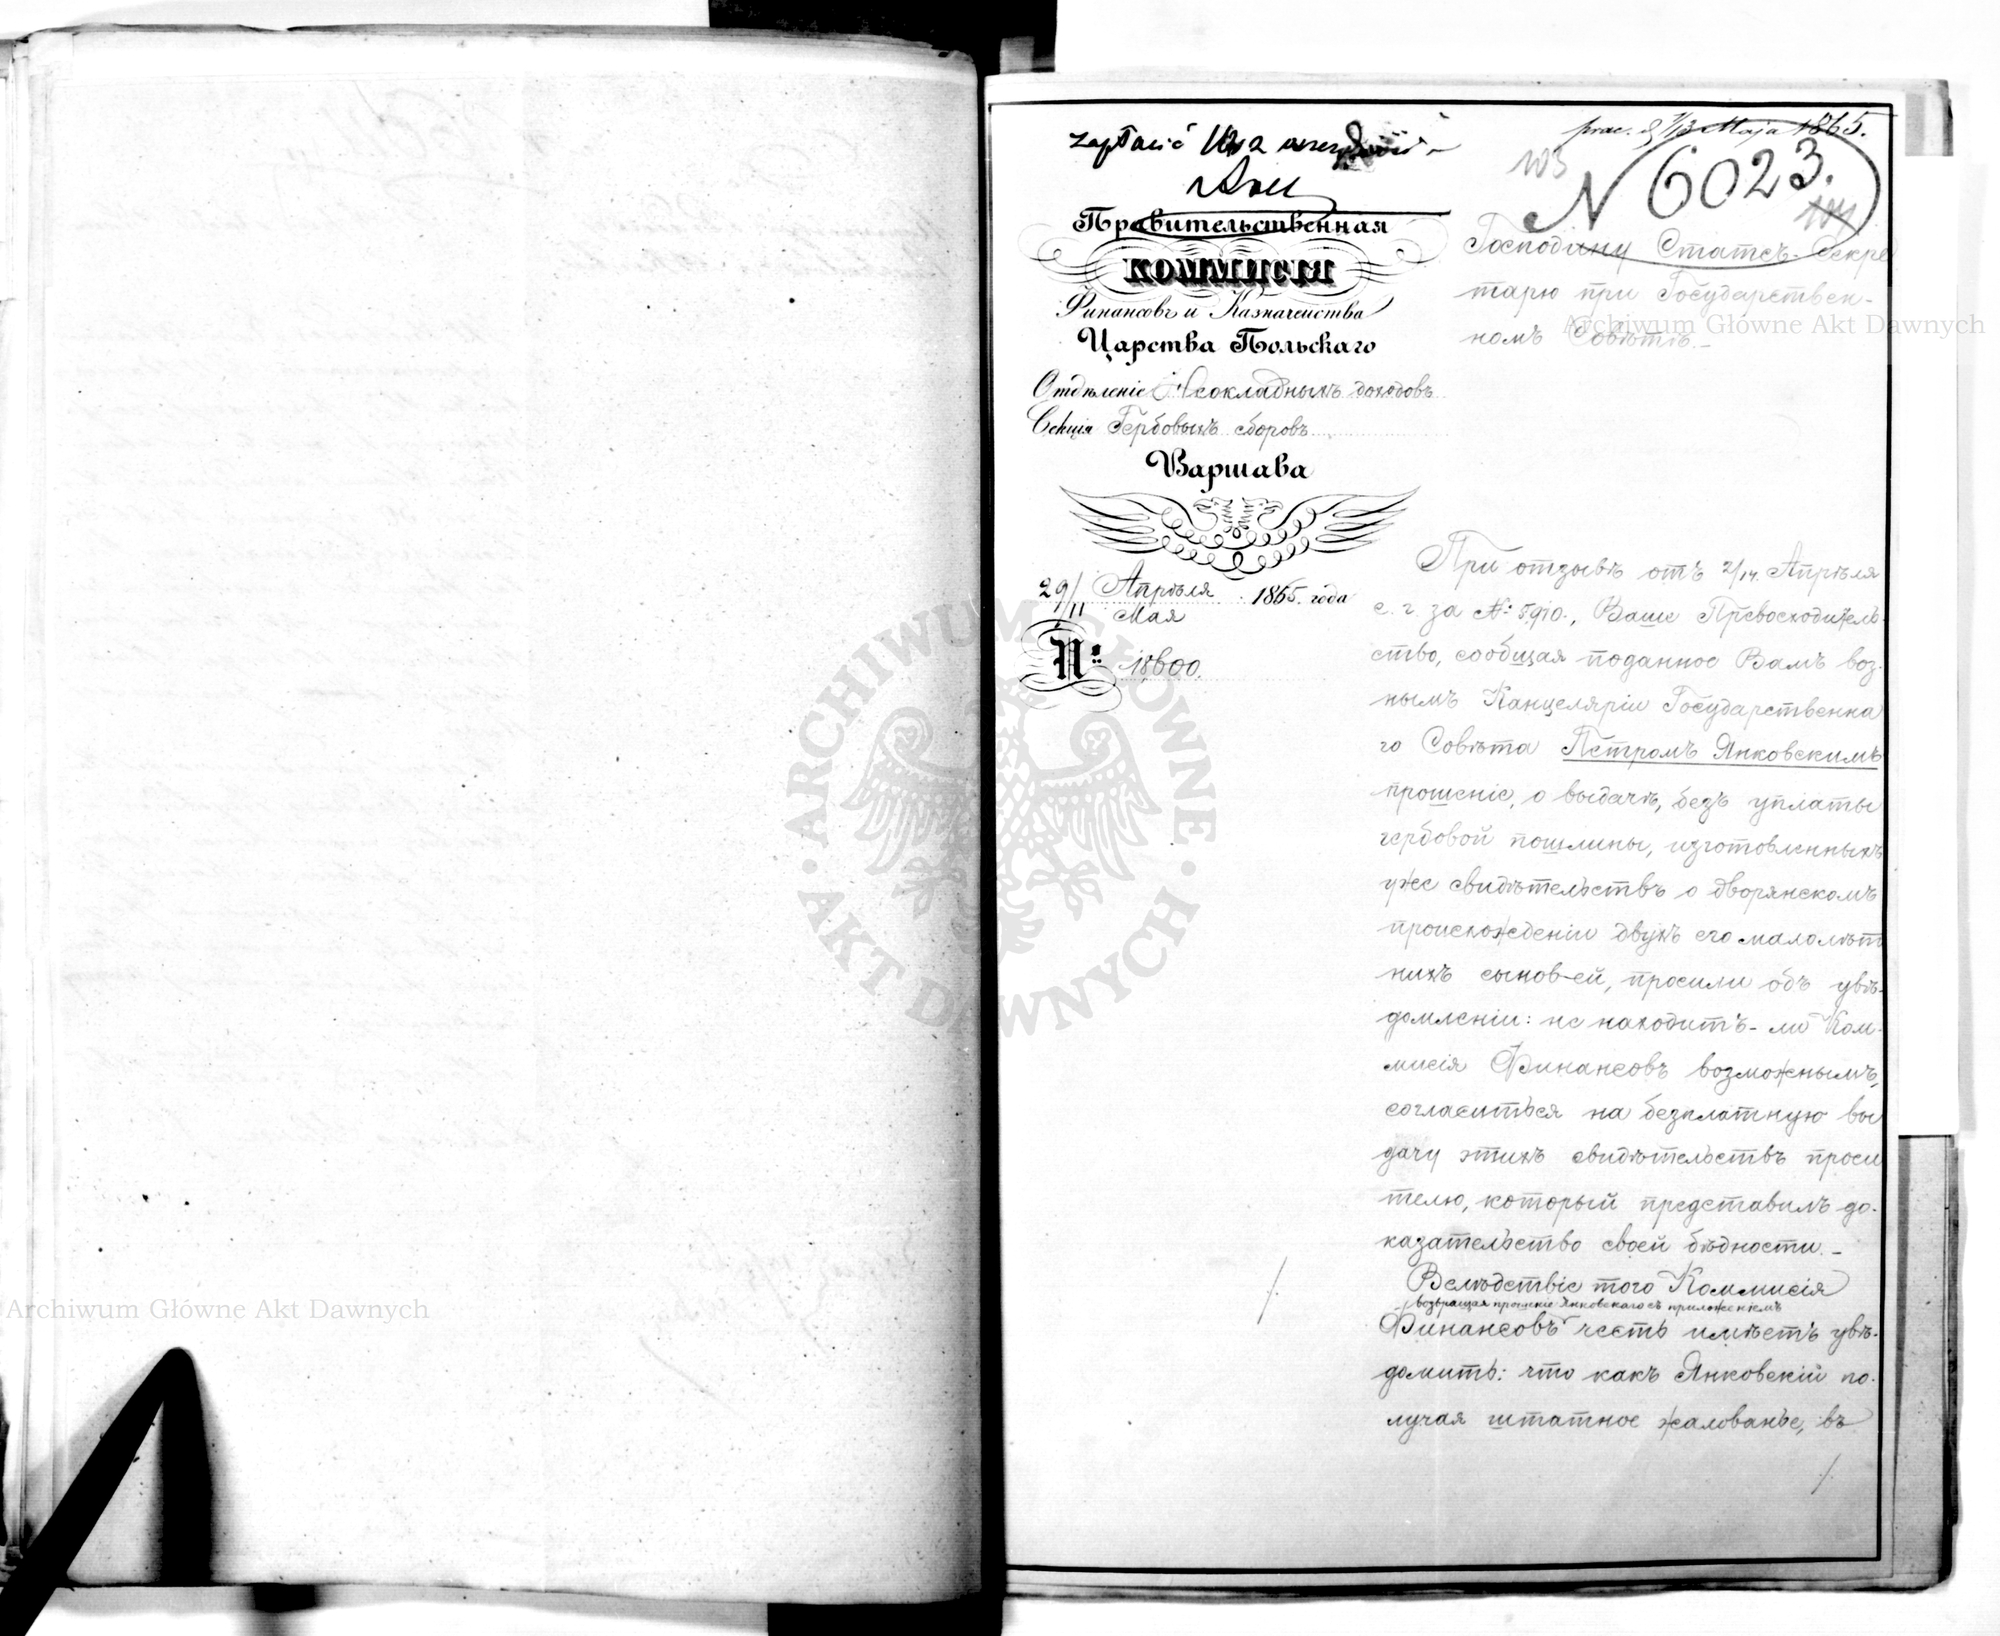 prac. d. 1/13 Maja 1865.
zapłacić
103
N 6023.
104
Правительственная
КОММИСІЯ
Финансовъ и Казначейства
Царства Польскаго
Отдѣленіе Неокладныхъ доходовъ
Секція Гербовыхъ сборовъ
Варшава
29/11 Апрѣля Мая 1865. года
№: 18600.
Господину Статсъ-Секре
тарю при Государствен-
номъ Совѣтѣ.-
При отзывѣ отъ 2/14. Апрѣля
с. г. за №: 5910., Ваше Превосходитель-
ство, сообщая поданное Вамъ воз-
нымъ Канцеляріи Государственна
го Совѣта Петромъ Янковскимъ
прошеніе, о выдачѣ, безъ уплаты
гербовой пошлины, изготовленныхъ
уже свидѣтельствъ о дворянскомъ
происхожденіи двухъ его малолѣт
нихъ сыновей, просили объ увѣ-
домленіи: не находитъ-ли Ком-
мисія Финансовъ возможнымъ,
согласиться на безплатную вы
дачу этихъ свидѣтельствъ проси
телю, который представилъ до-
казательство своей бѣдности.-
Вслѣдствіе того Коммисія
возвращая прошеніе Янковскаго съ приложеніемъ
Финансовъ честь имѣетъ увѣ-
домить: что какъ Янковскій по-
лучая штатное жалованье, въ
Archiwum Główne Akt Dawnych
Archiwum Główne Akt Dawnych
ARCHIWUM GŁÓWNE · AKT DAWNYCH ·